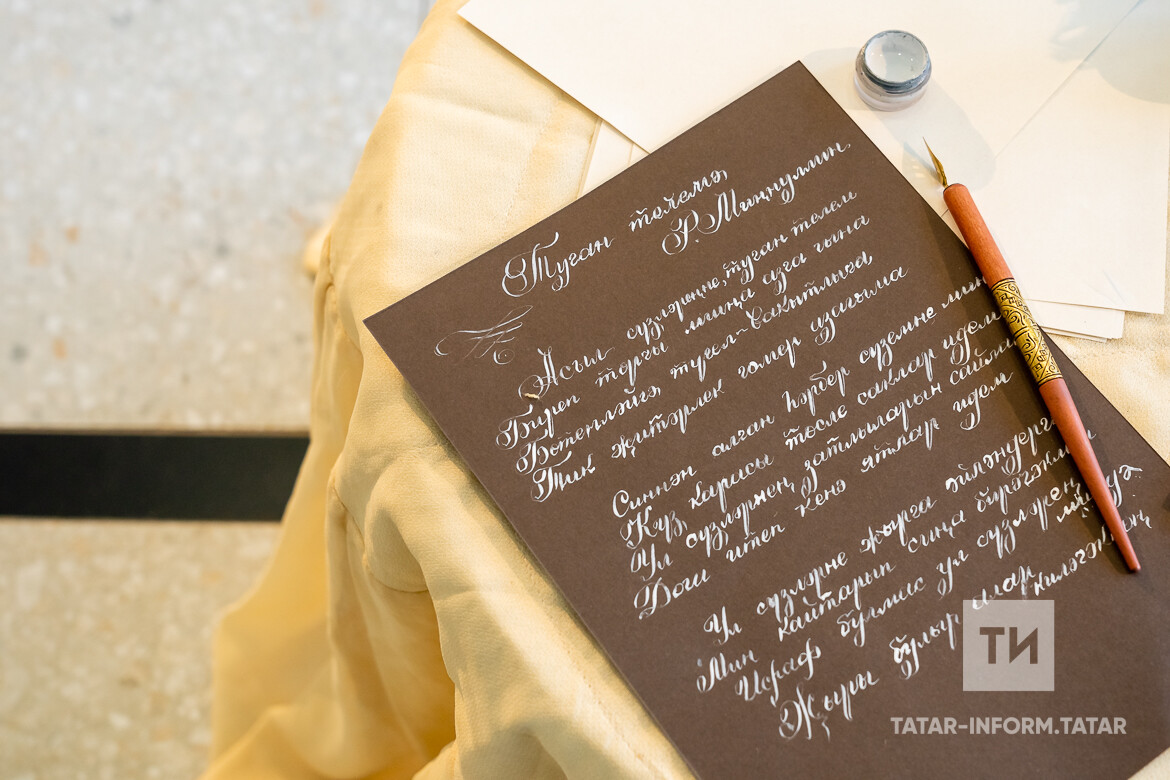 Туган телемә
Р. Миңнуллин
Асыл сүзләреңне, туган телем
Биреп торгы миңа азга гына
Бөтенләйгә түгел - вакытлыга,
Тик җитәрлек гомер узагыма
Синнән алган һәрбер сүземне мин
Күз карасы төсле саклар идем
Ул сүзләрнең затлыларын сайлап
Дога итеп кенә ятлар идем
Ул сүзләрне җырга әйләндереп
Мин кайтарып сиңа бирәчәкмен
Исраф булмас ул сүзләрең
Җыры булыр алар киләчәкнең
ТИ
TATAR-INFORM.TATAR